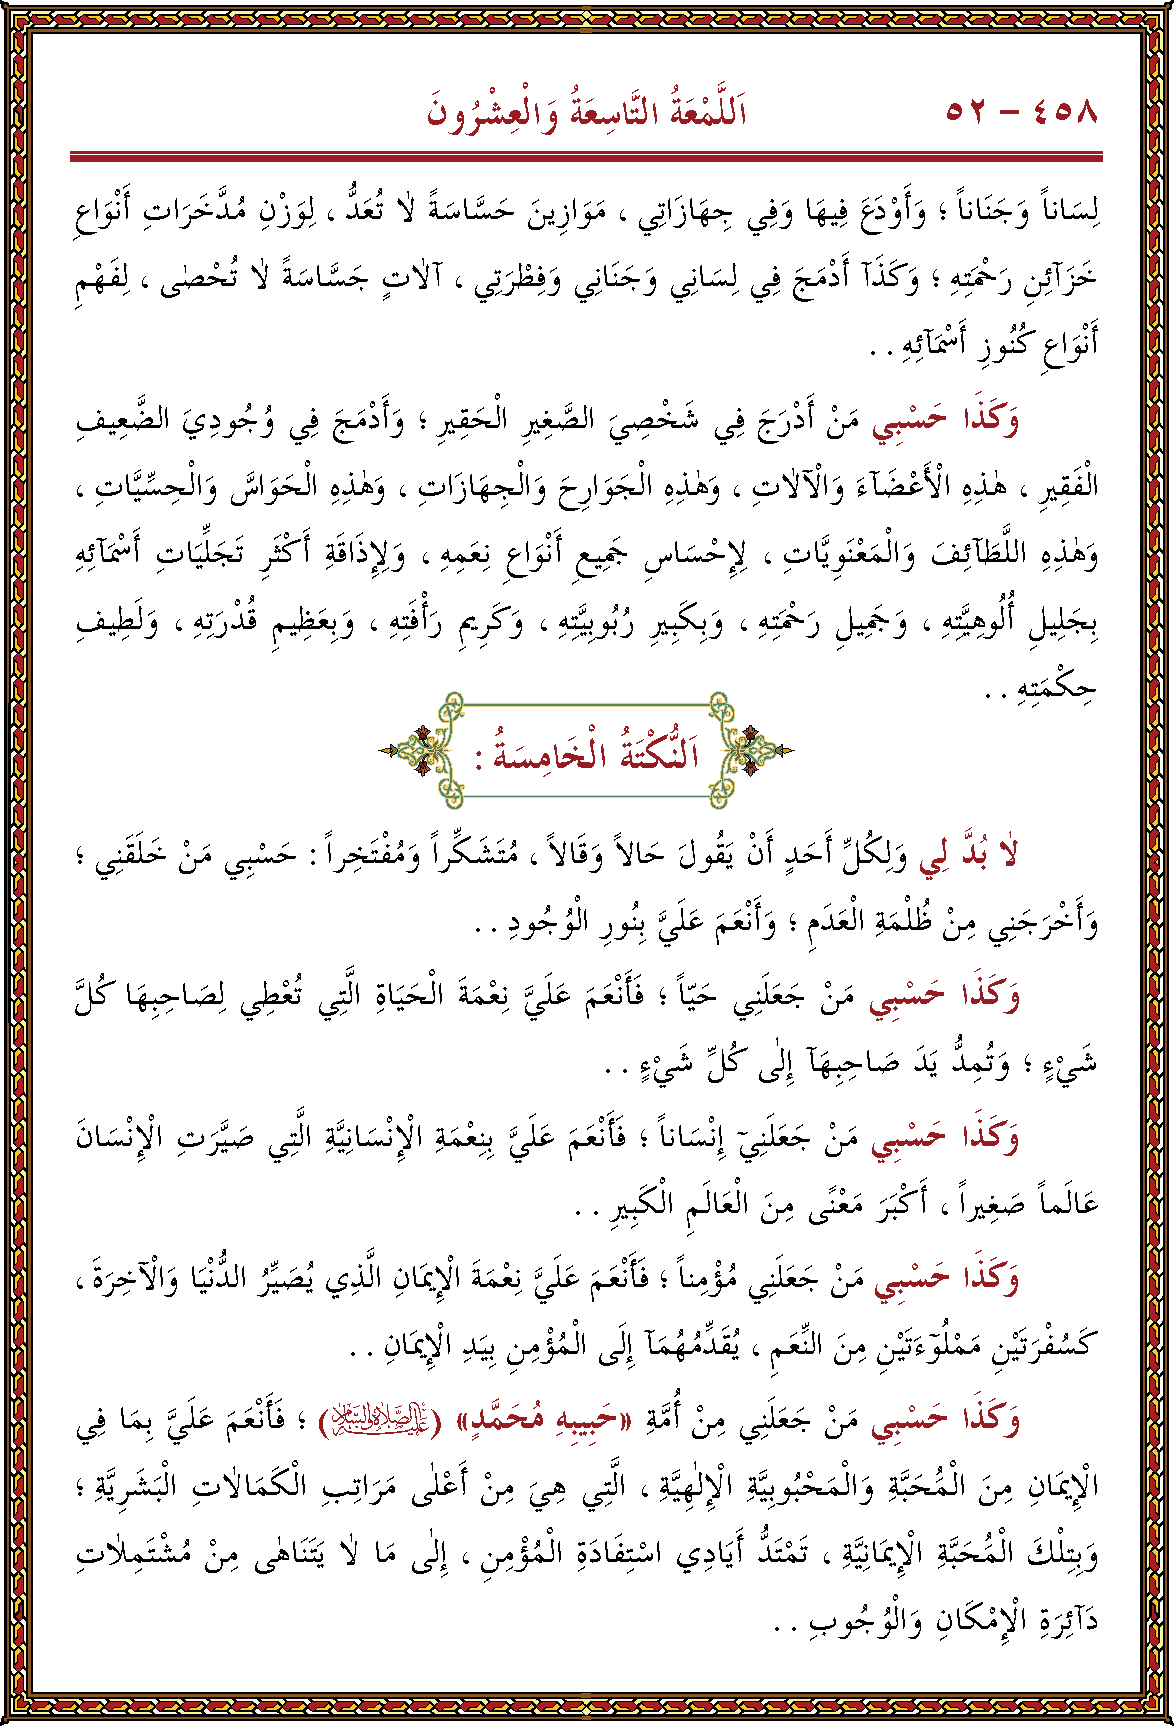 ٤٥٨ – ٥٢
اَللَّمْعَةُ التَّاسِعَةُ وَالْعِشْرُونَ
لِسَاناً وَجَنَاناً ؛ وَأَوْدَعَ فِيهَا وَفِي جِهَازَاتِي ، مَوَازِينَ حَسَّاسَةً لاٰ تُعَدُّ ، لِوَزْنِ مُدَّخَرَاتِ أَنْوَاعِ
خَزَآئِنِ رَحْمَتِهِ ؛ وَكَذَآ أَدْمَجَ فِي لِسَانِي وَجَنَانِي وَفِطْرَتِي ، آلاٰتٍ جَسَّاسَةً لاٰ تُحْصٰى ، لِفَهْمِ
أَنْوَاعِ كُنُوزِ أَسْمَآئِهِ . .
وَكَذَا حَسْبِي مَنْ أَدْرَجَ فِي شَخْصِيَ الصَّغِيرِ الْحَقِيرِ ؛ وَأَدْمَجَ فِي وُجُودِيَ الضَّعِيفِ
الْفَقِيرِ ، هٰذِهِ الْأَعْضَآءَ وَالْآلاٰتِ ، وَهٰذِهِ الْجَوَارِحَ وَالْجِهَازَاتِ ، وَهٰذِهِ الْحَوَاسَّ وَالْحِسِّيَّاتِ ،
وَهٰذِهِ اللَّطَآئِفَ وَالْمَعْنَوِيَّاتِ ، لِإِحْسَاسِ جَمِيعِ أَنْوَاعِ نِعَمِهِ ، وَلِإِذَاقَةِ أَكْثَرِ تَجَلِّيَاتِ أَسْمَآئِهِ
بِجَلِيلِ أُلُوهِيَّتِهِ ، وَجَمِيلِ رَحْمَتِهِ ، وَبِكَبِيرِ رُبُوبِيَّتِهِ ، وَكَرِيمِ رَأْفَتِهِ ، وَبِعَظِيمِ قُدْرَتِهِ ، وَلَطِيفِ
حِكْمَتِهِ . .
اَلنُّكْتَةُ الْخَامِسَةُ :
لاٰ بُدَّ لِي وَلِكُلِّ أَحَدٍ أَنْ يَقُولَ حَالاً وَقَالاً ، مُتَشَكِّراً وَمُفْتَخِراً : حَسْبِي مَنْ خَلَقَنِي ؛
وَأَخْرَجَنِي مِنْ ظُلْمَةِ الْعَدَمِ ؛ وَأَنْعَمَ عَلَيَّ بِنُورِ الْوُجُودِ . .
وَكَذَا حَسْبِي مَنْ جَعَلَنِي حَيّاً ؛ فَأَنْعَمَ عَلَيَّ نِعْمَةَ الْحَيَاةِ الَّتِي تُعْطِي لِصَاحِبِهَا كُلَّ
شَيْءٍ ؛ وَتُمِدُّ يَدَ صَاحِبِهَآ إِلٰى كُلِّ شَيْءٍ . .
وَكَذَا حَسْبِي مَنْ جَعَلَنِيٓ إِنْسَاناً ؛ فَأَنْعَمَ عَلَيَّ بِنِعْمَةِ الْإِنْسَانِيَّةِ الَّتِي صَيَّرَتِ الْإِنْسَانَ
عَالَماً صَغِيراً ، أَكْبَرَ مَعْنًى مِنَ الْعَالَمِ الْكَبِيرِ . .
وَكَذَا حَسْبِي مَنْ جَعَلَنِي مُؤْمِناً ؛ فَأَنْعَمَ عَلَيَّ نِعْمَةَ الْإِيمَانِ الَّذِي يُصَيِّرُ الدُّنْيَا وَالْآخِرَةَ ،
كَسُفْرَتَيْنِ مَمْلُوٓءَتَيْنِ مِنَ النِّعَمِ ، يُقَدِّمُهُمَآ إِلَى الْمُؤْمِنِ بِيَدِ الْإِيمَانِ . .
وَكَذَا حَسْبِي مَنْ جَعَلَنِي مِنْ أُمَّةِ «حَبِيبِهِ مُحَمَّدٍ» (عَلَيْهِ الصَّلاَةُ وَالسَّلاَمُ) ؛ فَأَنْعَمَ عَلَيَّ بِمَا فِي
الْإِيمَانِ مِنَ الْمُحَبَّةِ وَالْمَحْبُوبِيَّةِ الْإِلٰهِيَّةِ ، الَّتِي هِيَ مِنْ أَعْلٰى مَرَاتِبِ الْكَمَالاٰتِ الْبَشَرِيَّةِ ؛
وَبِتِلْكَ الْمُحَبَّةِ الْإِيمَانِيَّةِ ، تَمْتَدُّ أَيَادِي اسْتِفَادَةِ الْمُؤْمِنِ ، إِلٰى مَا لاٰ يَتَنَاهٰى مِنْ مُشْتَمِلاٰتِ
دَآئِرَةِ الْإِمْكَانِ وَالْوُجُوبِ . .